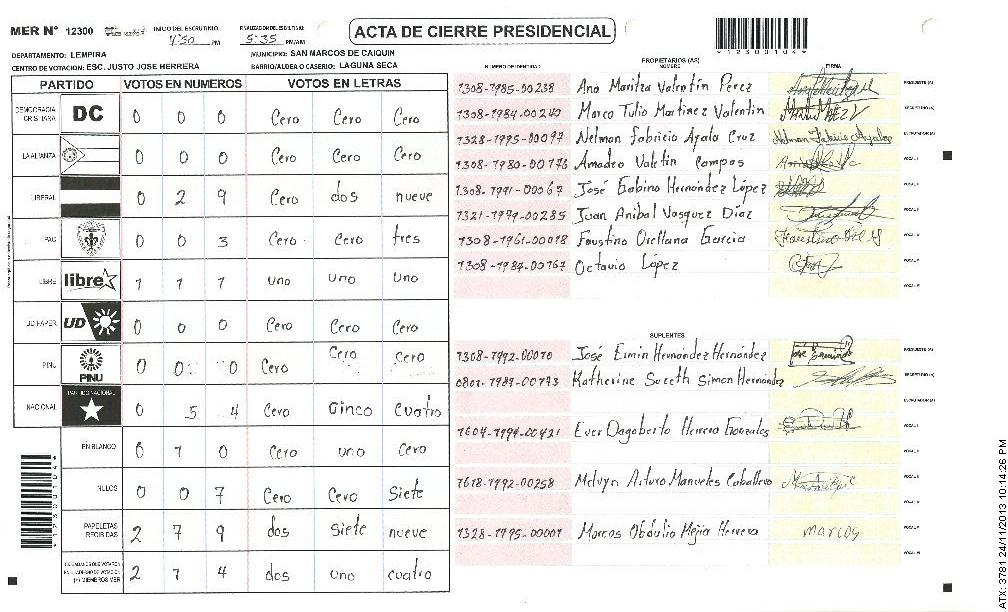 MER N° 12300
INICIO DEL ESCRUTINIO:
4:50 PM
FINALIZACION DEL ESCRUTINIO:
5:35 PM/AM
ACTA DE CIERRE PRESIDENCIAL
12300104
DEPARTAMENTO: LEMPIRA
MUNICIPIO: SAN MARCOS DE CAIQUIN
CENTRO DE VOTACION: ESC. JUSTO JOSE HERRERA
BARRIO/ALDEA O CASERIO: LAGUNA SECA
PARTIDO VOTOS EN NUMEROS VOTOS EN LETRAS
DEMOCRACIA CRISTIANA DC 0 0 0 Cero Cero Cero
LA ALIANZA 0 0 0 Cero Cero Cero
LIBERAL 0 2 9 Cero dos nueve
PAC 0 0 3 Cero Cero tres
LIBRE libre 1 1 1 uno uno uno
UD FAPER UD 0 0 0 Cero Cero Cero
PINU PINU 0 0 0 Cero Cero Cero
NACIONAL PARTIDO NACIONAL 0 5 4 Cero Cinco Cuatro
EN BLANCO 0 1 0 Cero uno Cero
NULOS 0 0 7 Cero Cero Siete
PAPELETAS RECIBIDAS 2 7 9 dos siete nueve
CIUDADANOS QUE VOTARON EN CUADERNO DE VOTACION (+) MIEMBROS MER 2 1 4 dos uno cuatro
PROPIETARIOS (AS)
NUMERO DE IDENTIDAD NOMBRE FIRMA
1308-1985-00238 Ana Maritza Valentín Pérez PRESIDENTE (A)
1308-1984-00240 Marco Tulio Martinez Valentin SECRETARIO (A)
1328-1995-00097 Nelman Fabricio Ayala Cruz ESCRUTADOR (A)
1308-1980-00176 Amadeo Valetin Campos VOCAL I
1308-1991-00067 José Gabino Hernández López
1321-1979-00285 Juan Anibal Vasquez Díaz
1308-1961-00018 Faustino Orellana Garcia
1308-1987-00167 Octavio López
SUPLENTES
1308-1992-00010 José Ermin Hernández Hernández PRESIDENTE (A)
0801-1989-00773 Katherine Suceth Simon Hernández SECRETARIO (A)
ESCRUTADOR (A)
1604-1994-00421 Ever Dagoberto Herrera Gonzales
1618-1992-00258 Melvyn Arturo Manueles Caballero
1328-1995-00001 Marcos Obdulio Mejia Herrera marcos
12300104
ATX: 3781 24/11/2013 10:14:26 PM